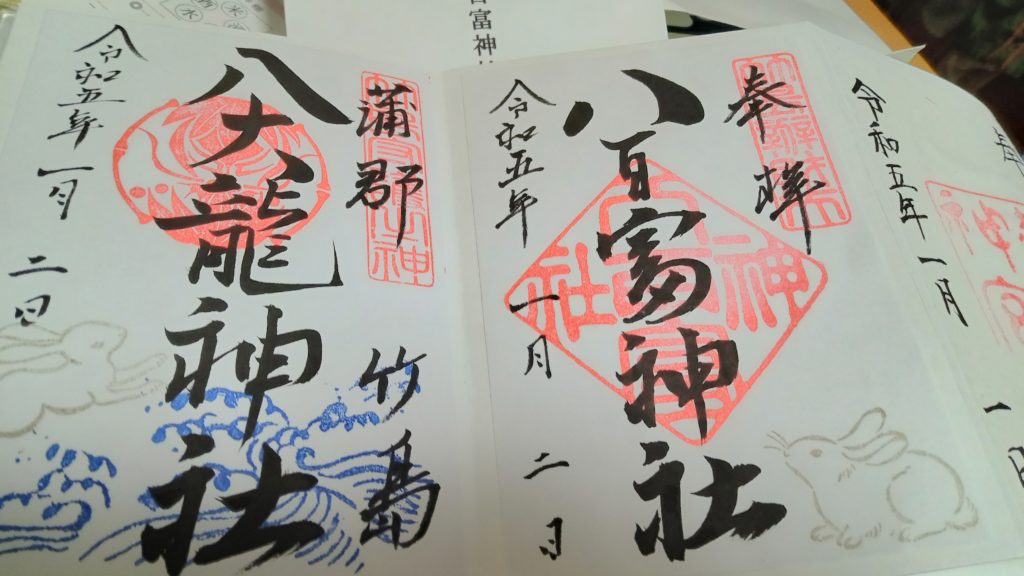 富神
令和五年一月
奉拝
八百富神社
令和五年一月二日
蒲郡竹島
八大龍神社
令和五年一月二日